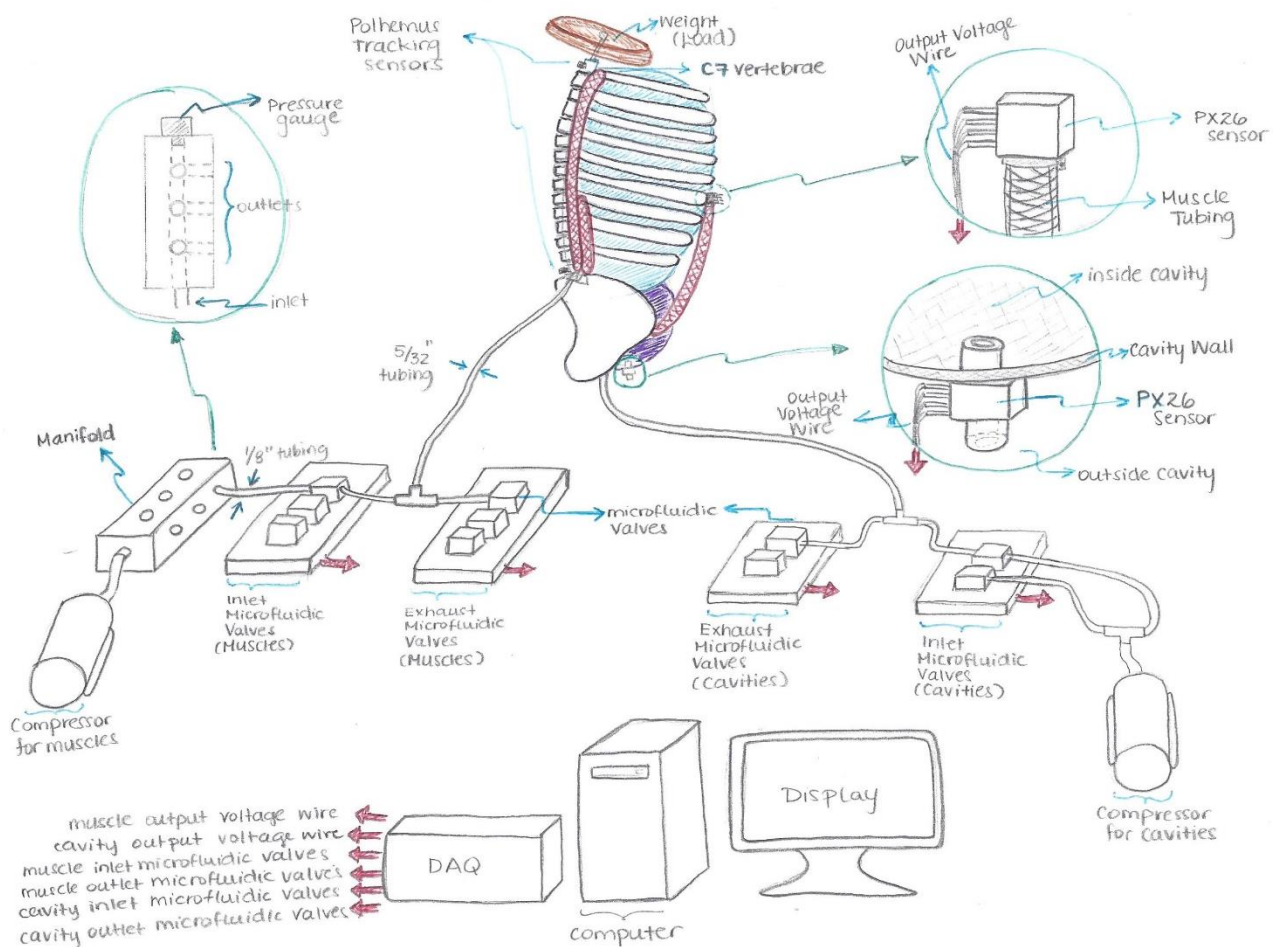 Polhemus
tracking
sensors
Weight
(Load)
C7 vertebrae
Output Voltage
Wire
PX26
sensor
Muscle
Tubing
Pressure
gauge
outlets
inlet
inside cavity
Cavity Wall
PX26
Sensor
Output
Voltage
Wire
outside cavity
5/32"
tubing
Manifold
1/8" tubing
microfluidic
valves
Inlet
Microfluidic
Valves
(Muscles)
Exhaust
Microfluidic
Valves
(Muscles)
Exhaust
Microfluidic
Valves
(Cavities)
Inlet
Microfluidic
Valves
(Cavities)
Compressor
for muscles
Compressor
for cavities
muscle output voltage wire
cavity output voltage wire
muscle inlet microfluidic valves
muscle outlet microfluidic valves
cavity inlet microfluidic valves
cavity outlet microfluidic valves
DAQ
computer
Display